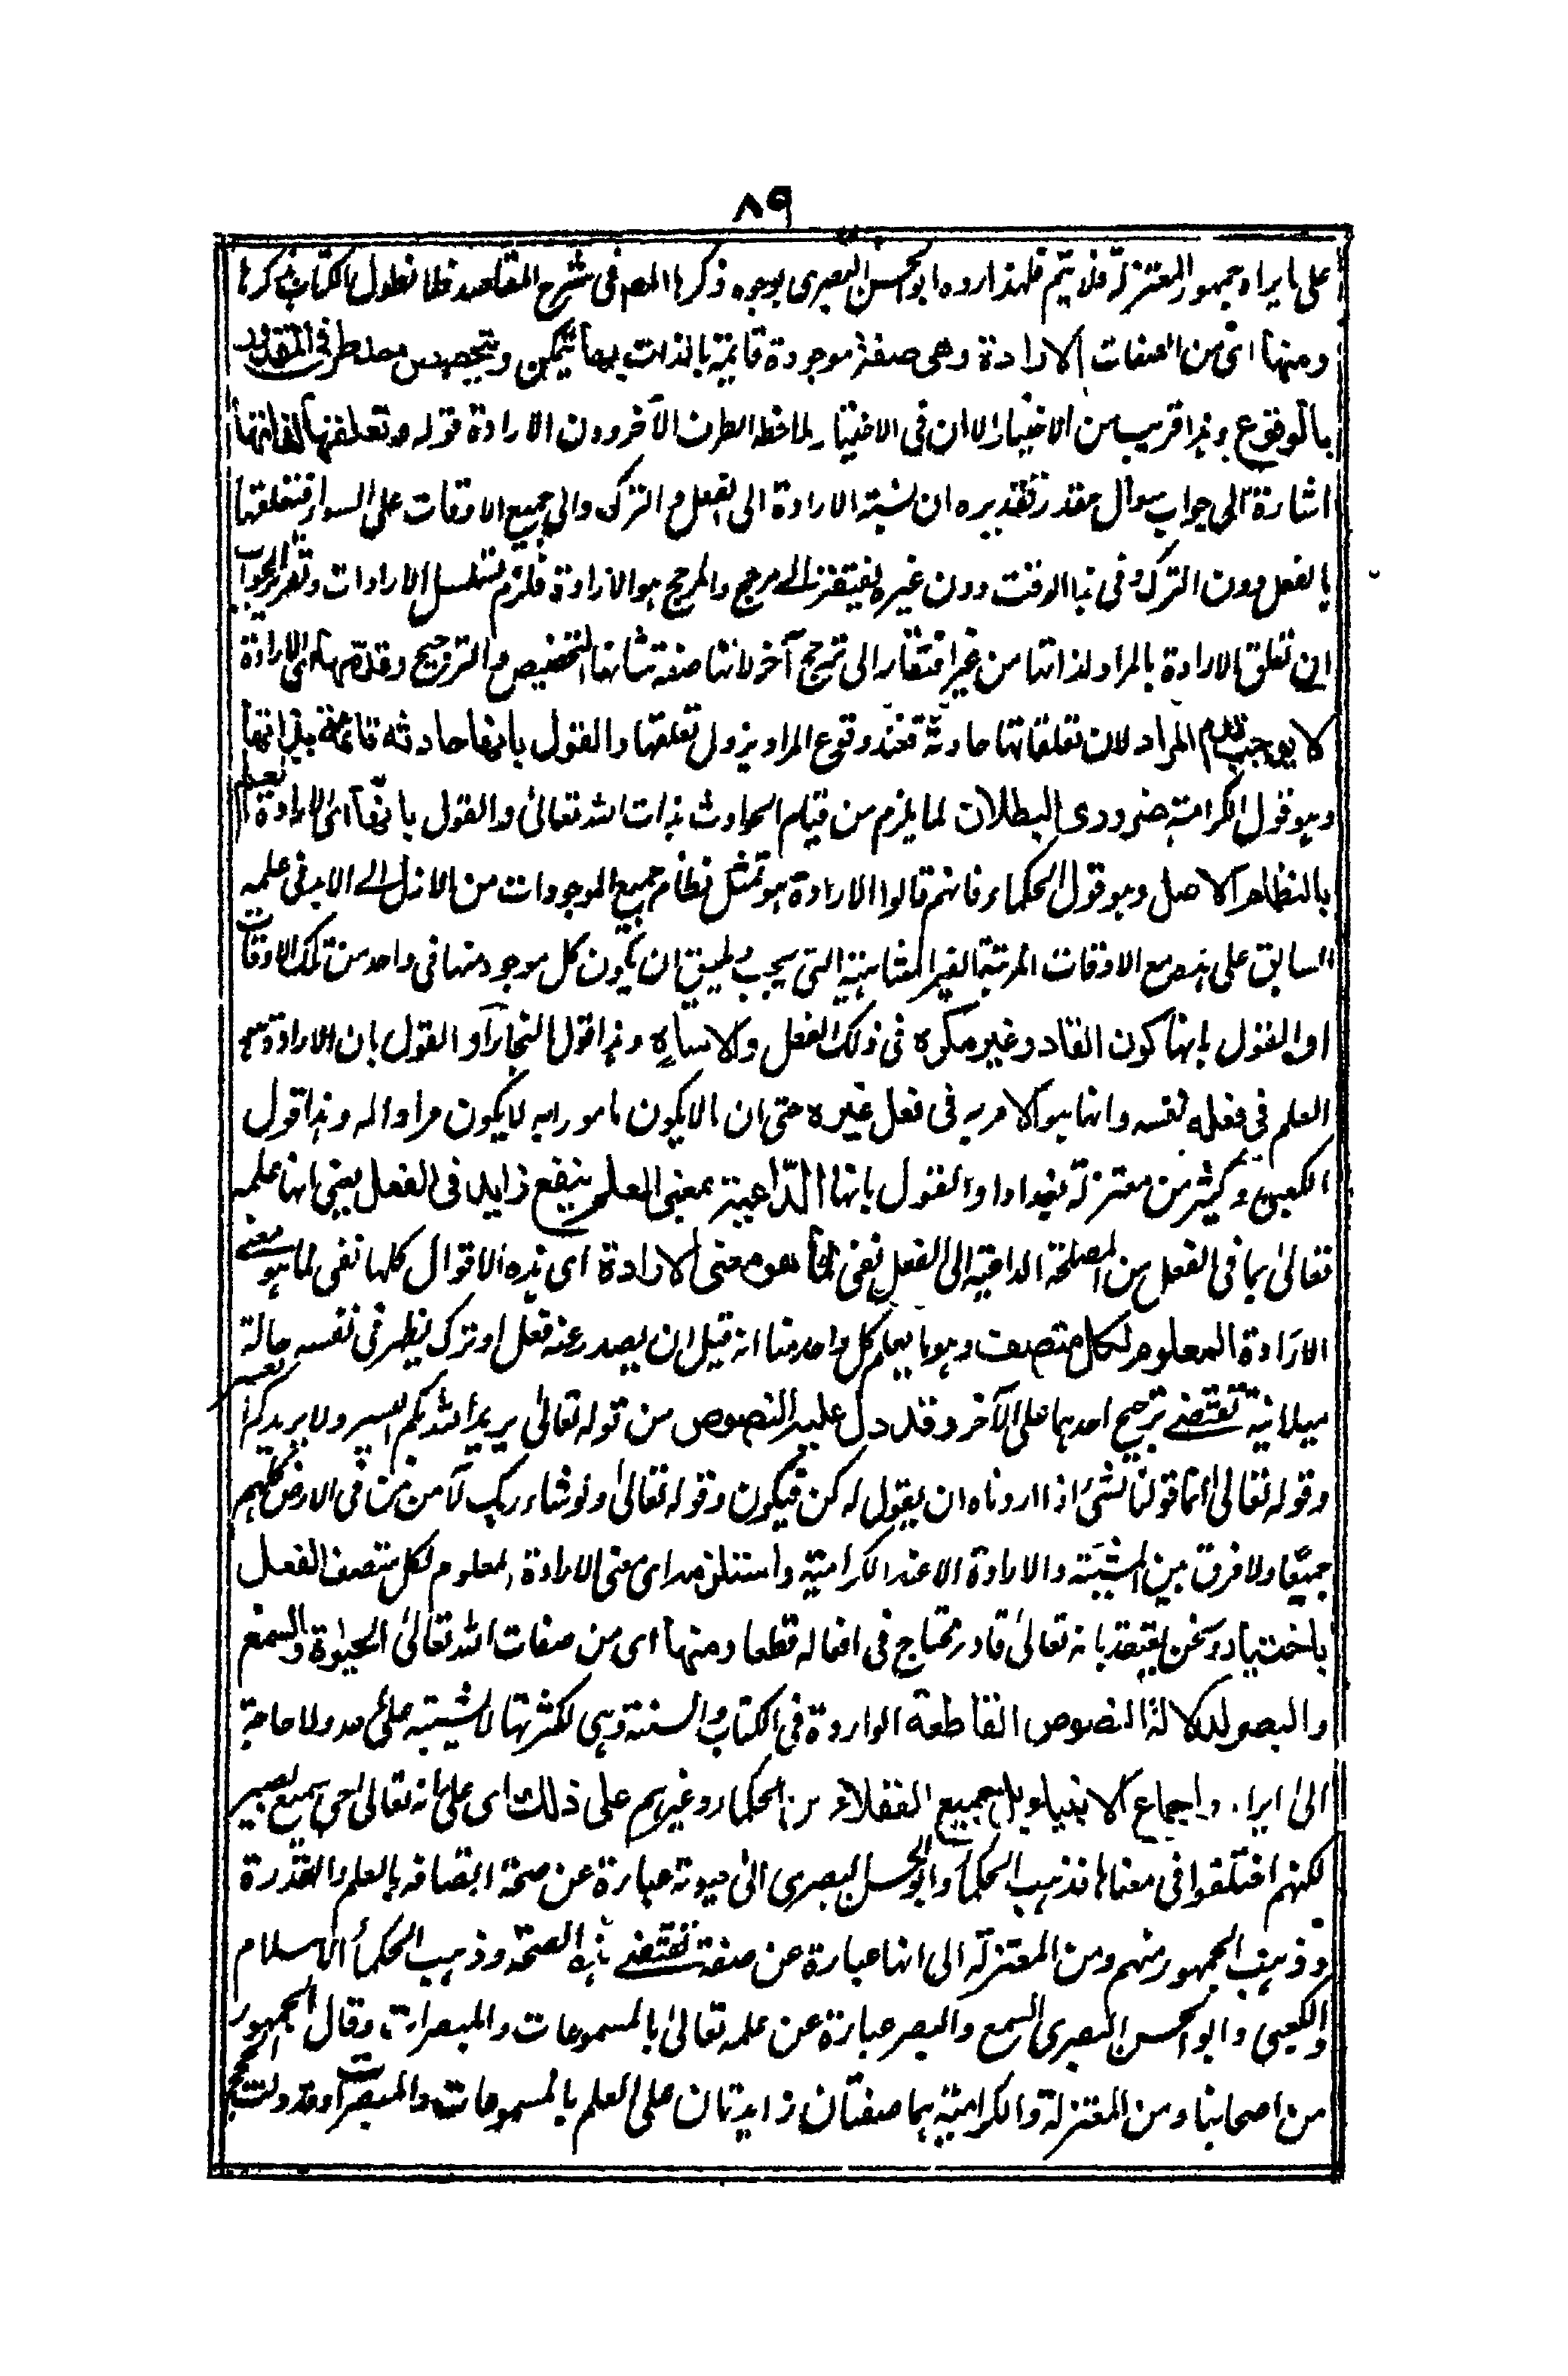 ٨٩
على ما يراه جمهور المعتزلة فلا يتم فلهذا رده ابو الحسين البصرى بوجوه ذكرها المص فى شرح المقاصد فلا نطول الكتاب بذكرها
ومنها اى من الصفات الارادة وهى صفة موجودة قايمة بالذات بها يتمكن ويتخصص احد طرفى المقدور
بالوقوع وهذا قريب من الاختيار الا ان فى الاختيار ملاحظه الطرف الآخر دون الارادة قوله وتعلقها لذاتها
اشارة الى جواب سوال مقدر تقديره ان نسبة الارادة الى الفعل والترك والى جميع الاوقات على السواء فتعلقها
بالفعل دون الترك وفى هذا الوقت دون غيره يفتقر الے مرجح والمرجح هو الارادة فلزم تسلسل الارادات وتقرير الجواب
ان تعلق الارادة بالمراد لذاتها من غير افتقار الى ترجح آخر لانها صفة شانها التخصيص والترجيح وقدمها اى الارادة
لا يوجب قدم المراد لان تعلقاتها حادثة فعند وقوع المراد يزول تعلقها والقول بانها حادثه قائمة بذاتها
وهو قول الكرامية ضرورى البطلان لما يلزم من قيام الحوادث بذات الله تعالى والقول بانها اى الارادة العلم
بالنظام الاصل وهو قول الحكماء فانهم قالوا الارادة هو تمثل نظام جميع الموجودات من الازل الے الابد فى علمه
السابق على هذه مع الاوقات المرتبة الغير المتناهية التى يجب ويليق ان يكون كل موجود منها فى واحد من تلك الاوقات
او القول بانها كون القادر غير مكره فى ذلك الفعل ولا ساه وهذا قول النجار او القول بان الارادة هو
العلم فى فعله نفسه وانها هو الامر به فى فعل غيره حتى ان ما لا يكون مامورا به لا يكون مرادا له وهذا قول
الكعبى وكثير من معتزلة بغداد او القول بانها الداعية بمعنى العلم بنفع زايد فى الفعل يعنى انها علمه
تعالى بما فى الفعل من المصلحة الداعية الى الفعل نفى لما هو معنى الارادة اى هذه الاقوال كلها نفى لما هو معنے
الارادة المعلوم لكل متصف وهو ما يعلم كل واحد منا انه قبل ان يصدر عنه فعل او ترك يظهر فى نفسه حالة
ميلانية تقتضے ترجيح احدهما على الآخر وقد دل عليه النصوص من قوله تعالى يريد الله بكم اليسر ولا يريد بكم العسر
وقوله تعالى انما قولنا لشئ اذا اردناه ان يقول له كن فيكون وقوله تعالى ولو شاء ربك لآمن من فى الارض كلهم
جميعا ولا فرق بين المشيئة والارادة الا عند الكرامية واستلزمه اى معنى الارادة المعلوم لكل متصف الفعل
باختيار ونحن نعتقد بانه تعالى قادر مختار فى افعاله قطعا ومنها اى من صفات الله تعالى الحيوة والسمع
والبصر لدلالة النصوص القاطعة الواردة فى الكتاب والسنة وهى لكثرتها لا يشتبه على احد ولا حاجة
الى ايراد واجماع الانبياء بل جميع العقلاء من الحكماء وغيرهم على ذلك اى على انه تعالى حى سميع بصير
لكنهم اختلفوا فى معناها فذهب الحكماء وابو الحسين البصرى الى حيوته عبارة عن صحة اتصافه بالعلم والقدرة
وذهب الجمهور منهم ومن المعتزلة الى انها عبارة عن صفة تقتضے هذه الصحة وذهب الحكماء الاسلام
والكعبى وابو الحسين البصرى السمع والبصر عبارة عن علمه تعالى بالمسموعات والمبصرات وقال الجمهور
من اصحابنا ومن المعتزلة والكرامية هما صفتان زايدتان على العلم بالمسموعات والمبصرات وقد دلت